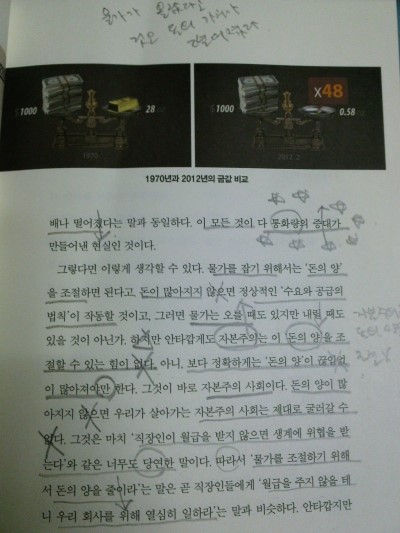 물가가 올랐다는
것은 돈의 가치가
떨어졌다
$1000
28 oz
1970
x48
$1000
0.58 oz
2012. 2
1970년과 2012년의 금값 비교
배나 떨어졌다는 말과 동일하다. 이 모든 것이 다 통화량의 증대가
만들어낸 현실인 것이다.
그렇다면 이렇게 생각할 수 있다. 물가를 잡기 위해서는 ‘돈의 양’
을 조절하면 된다고. 돈이 많아지지 않으면 정상적인 ‘수요와 공급의
법칙’이 작동할 것이고, 그러면 물가는 오를 때도 있지만 내릴 때도
있을 것이 아닌가. 하지만 안타깝게도 자본주의는 이 ‘돈의 양’을 조
절할 수 있는 힘이 없다. 아니, 보다 정확하게는 ‘돈의 양’이 끊임없
이 많아져야만 한다. 그것이 바로 자본주의 사회이다. 돈의 양이 많
아지지 않으면 우리가 살아가는 자본주의 사회는 제대로 굴러갈 수
없다. 그것은 마치 ‘직장인이 월급을 받지 않으면 생계에 위협을 받
는다’와 같은 너무도 당연한 말이다. 따라서 ‘물가를 조절하기 위해
서 돈의 양을 줄이라’는 말은 곧 직장인들에게 ‘월급을 주지 않을 테
니 우리 회사를 위해 열심히 일하라’는 말과 비슷하다. 안타깝지만